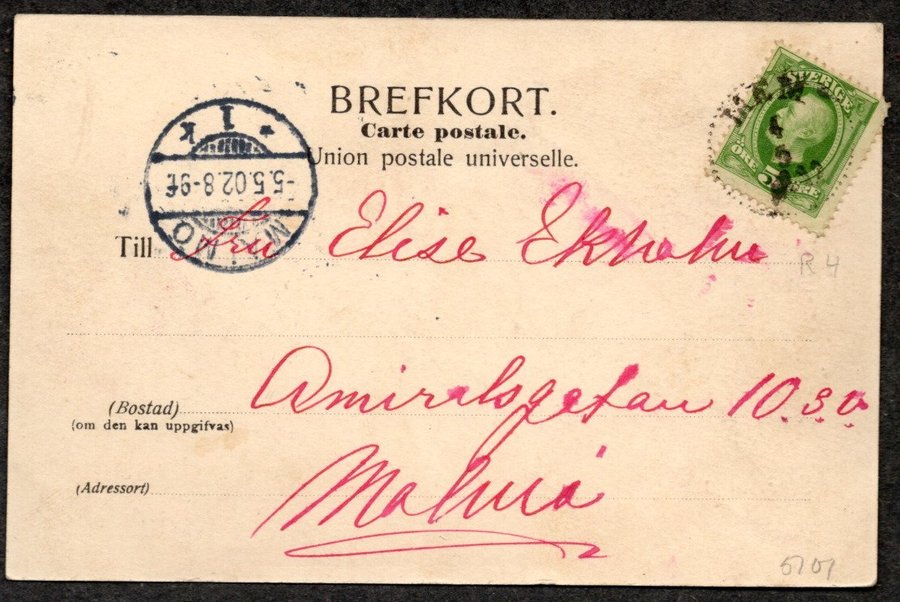 BREFKORT.
Carte postale.
Union postale universelle.
SVERIGE
5 ÖRE
* 1 K
5.5.02.8-9E
MALMÖ
Till Fru Elise Ekholm
R 4
Amiralsgatan 10.3.v.
(Bostad)
(om den kan uppgifvas)
(Adressort) Malmö
5101